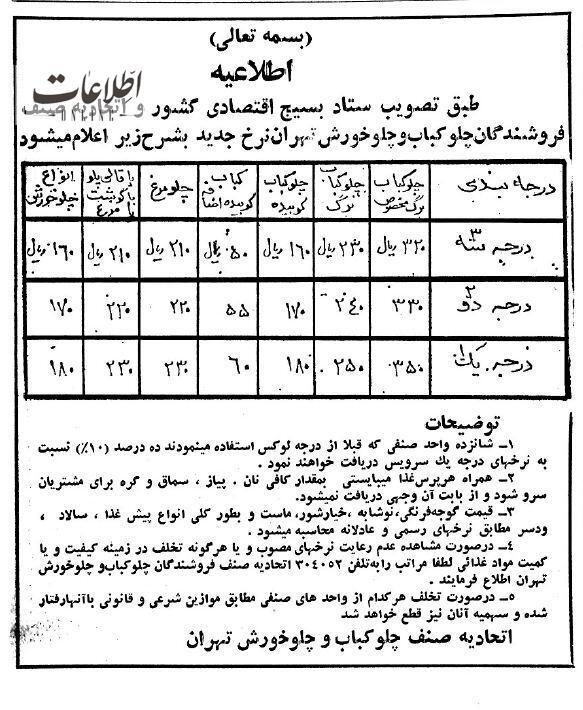 (بسمه تعالی)
اطلاعیه
اطلاعات
طبق تصویب ستاد بسیج اقتصادی کشور و اتحادیه صنف
فروشندگان چلوکباب و چلوخورش تهران نرخ جدید بشرح زیر اعلام میشود
درجه بندی | چلوکباب برگ مخصوص | چلوکباب برگ | چلوکباب کوبیده | کباب کوبیده اضافی | چلومرغ | باقالی پلو با گوشت یا مرغ | انواع چلوخورش
درجه ۳ سه | ۳۲۰ ریال | ۲۳۰ ریال | ۱۶۰ ریال | ۵۰ ریال | ۲۱۰ ریال | ۲۱۰ ریال | ۱۶۰ ریال
درجه ۲ دو | ۳۳۰ | ۲۴۰ | ۱۷۰ | ۵۵ | ۲۲۰ | ۲۲۰ | ۱۷۰
درجه یک ۱ | ۳۵۰ | ۲۵۰ | ۱۸۰ | ۶۰ | ۲۳۰ | ۲۳۰ | ۱۸۰
توضیحات
۱ـ شانزده واحد صنفی که قبلا از درجه لوکس استفاده مینمودند ده درصد (۱۰٪) نسبت
به نرخهای درجه یك سرویس دریافت خواهند نمود .
۲ـ همراه هرپرس غذا میبایستی بمقدار کافی نان . پیاز ، سماق و گره برای مشتریان
سرو شود و از بابت آن وجهی دریافت نمیشود.
۳ـ قیمت گوجه‌فرنگی، نوشابه ، خیارشور، ماست و بطور کلی انواع پیش غذا ، سالاد ،
ودسر مطابق نرخهای رسمی و عادلانه محاسبه میشود .
۴ـ درصورت مشاهده عدم رعایت نرخهای مصوب و یا هرگونه تخلف در زمینه کیفیت و یا
کمیت مواد غذائی لطفا مراتب را به تلفن ۳۰۴۰۵۲ اتحادیه صنف فروشندگان چلوکباب و چلوخورش
تهران اطلاع فرمایند .
۵ـ درصورت تخلف هرکدام از واحد های صنفی مطابق موازین شرعی و قانونی باآنهارفتار
شده و سهمیه آنان نیز قطع خواهد شد
اتحادیه صنف چلوکباب و چلوخورش تهران